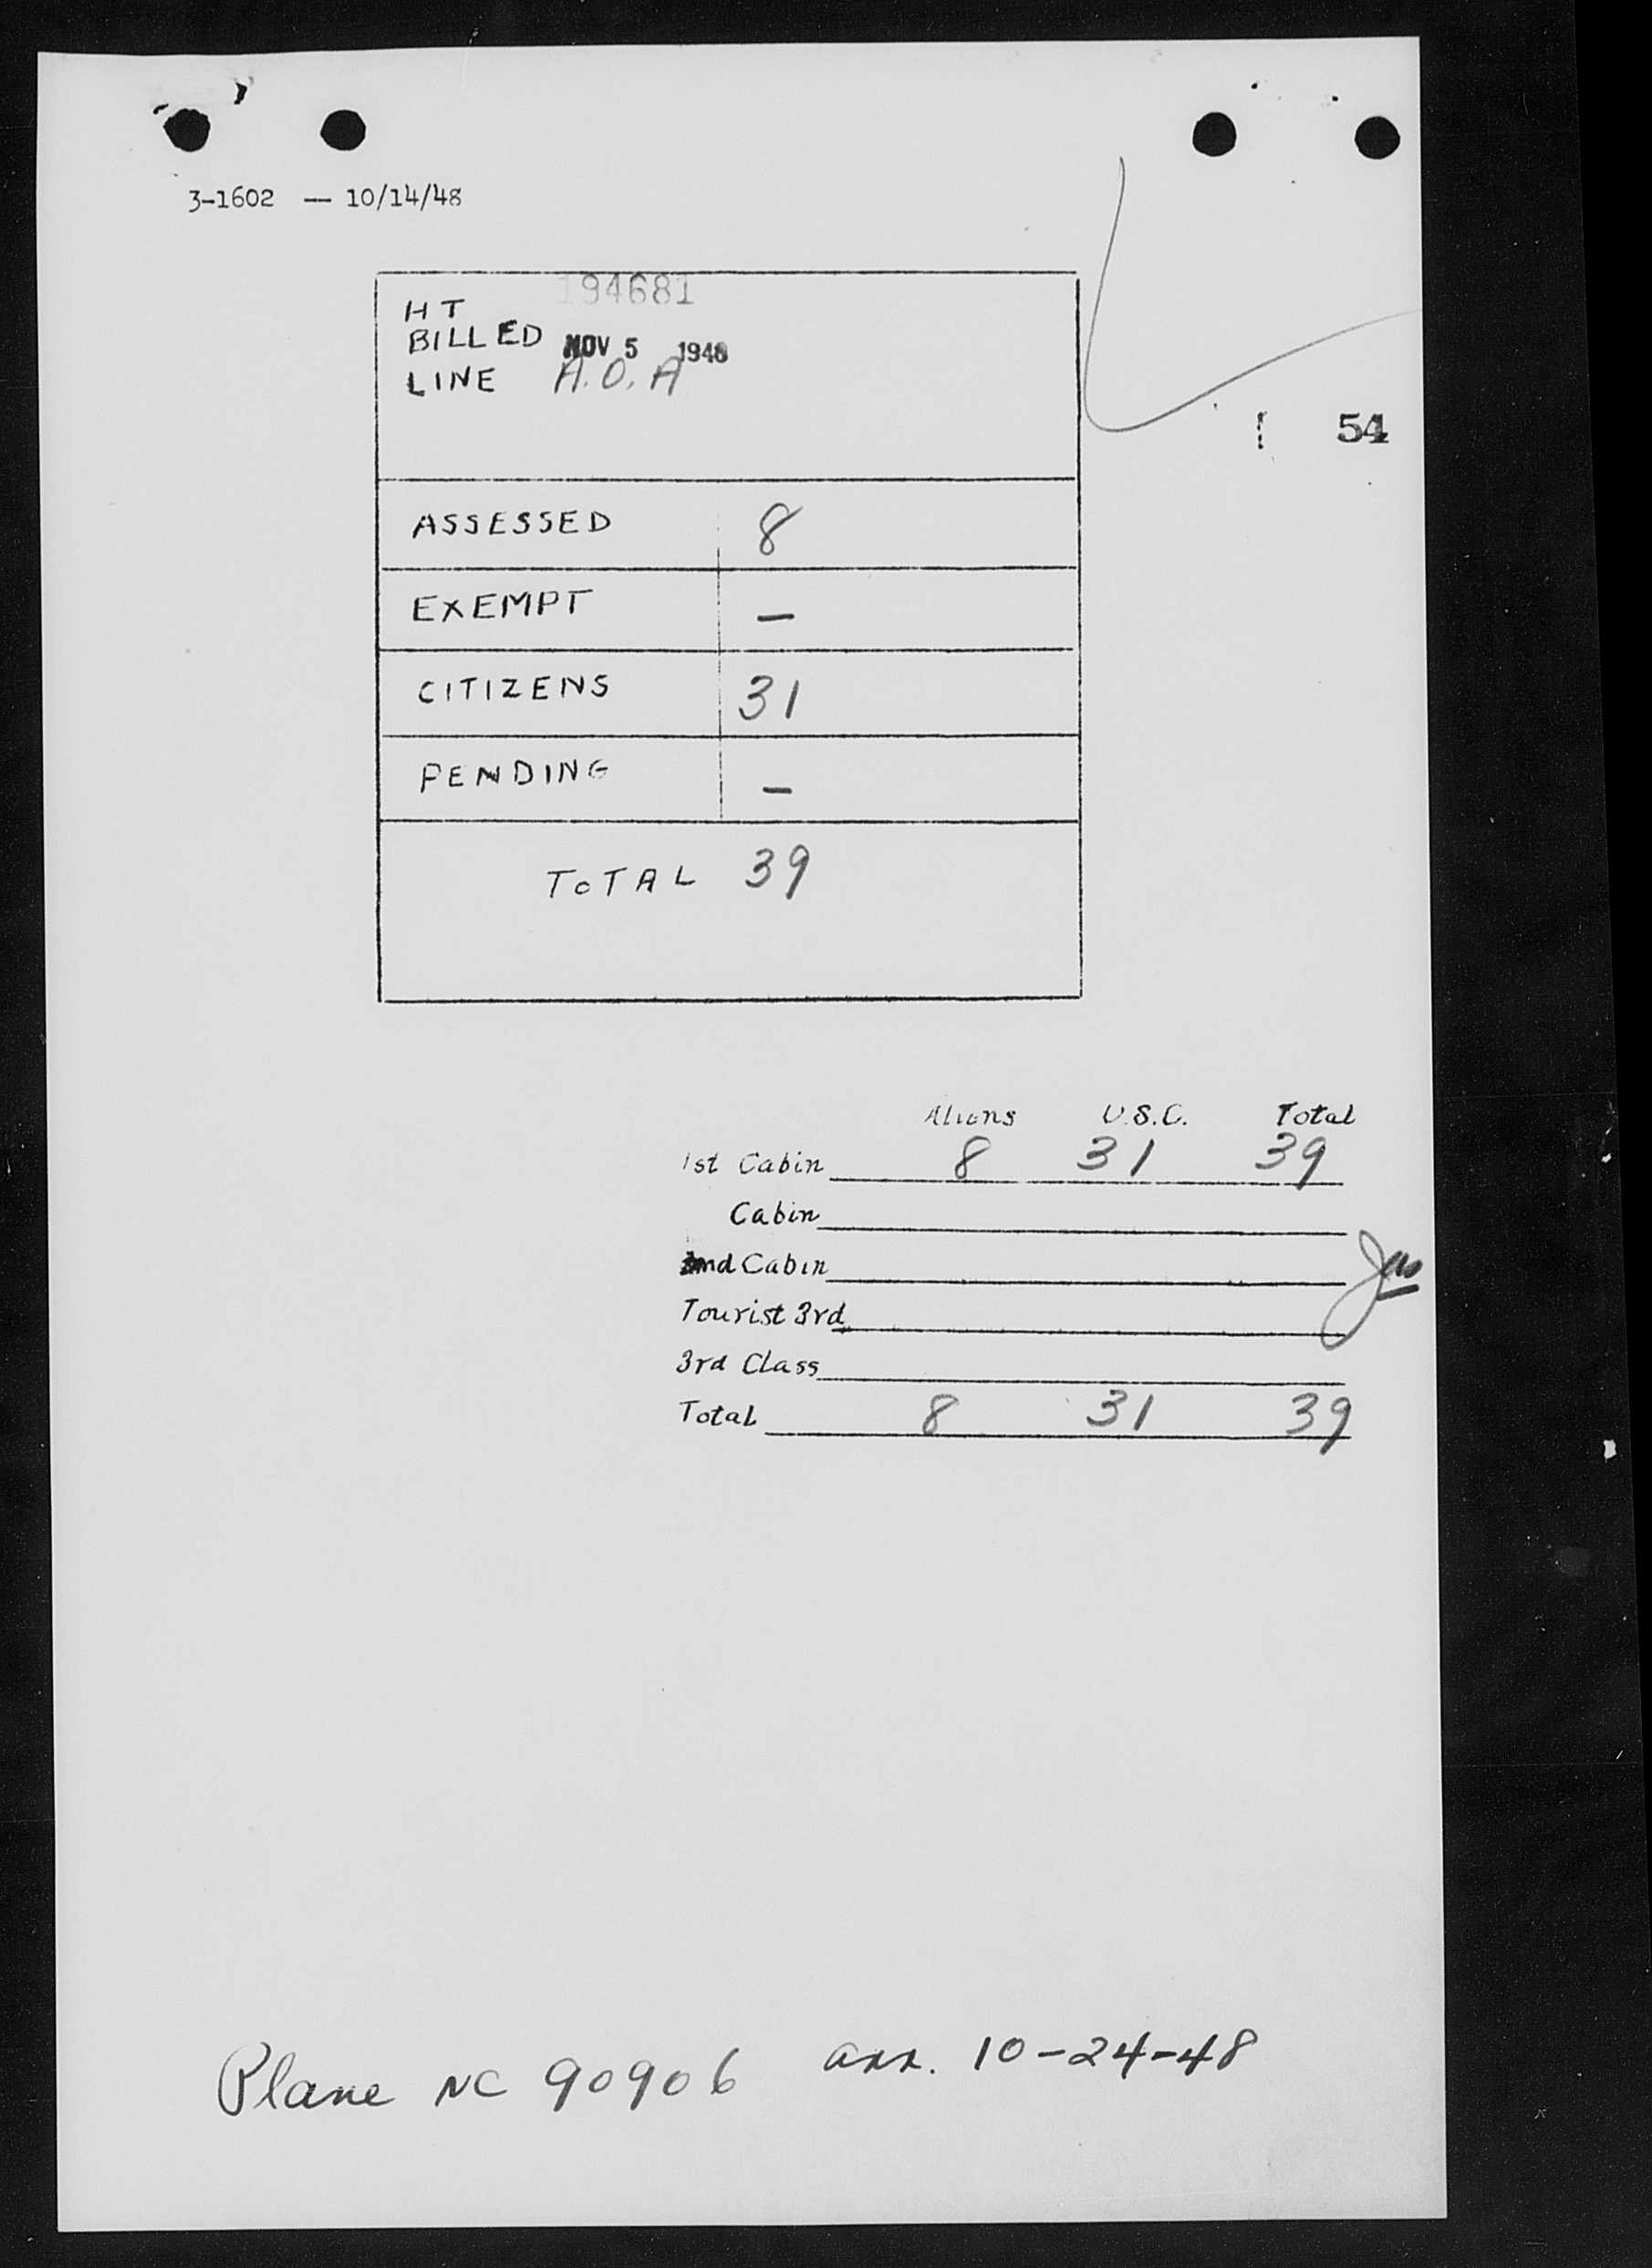 3-1602 — 10/14/48
194681
HT
BILLED NOV 5 1948
LINE A.O.A
54
ASSESSED 8
EXEMPT —
CITIZENS 31
PENDING —
TOTAL 39
Aliens U.S.C. Total
1st Cabin 8 31 39
Cabin
2nd Cabin
Tourist 3rd
3rd Class
Total 8 31 39
Plane NC 90906 arr. 10-24-48